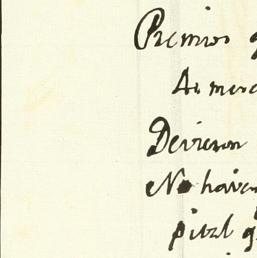 Premios q
As mesc
Devieron
No haver
pital q